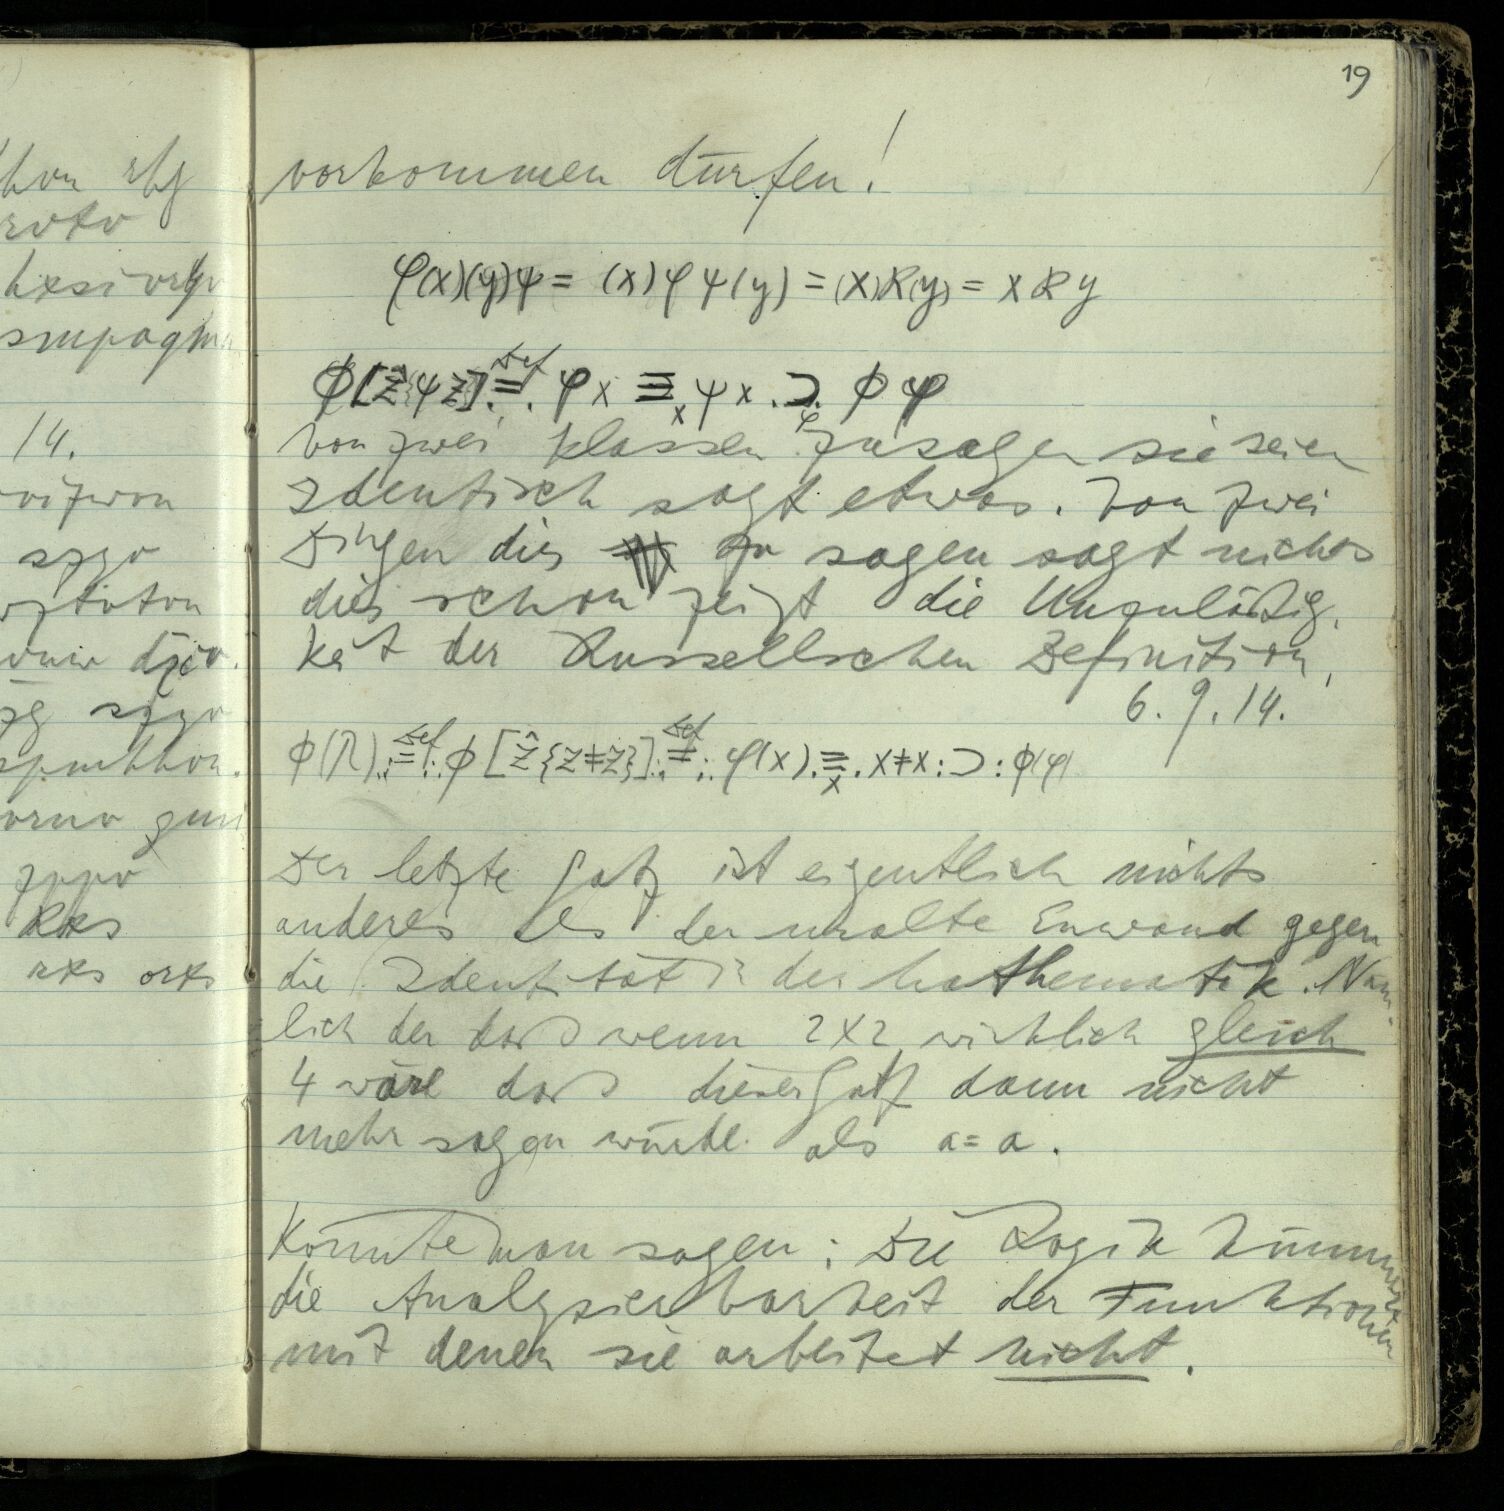 19
hon rhf
roto
hxsivrhv
14.
spgo
vorkommen dürfen!
φ(x)(y)ψ = (x)φψ(y) = (x)R(y) = xRy
ϕ[ẑ{ψz}]. =Def . φx ≡x ψx .⊃φ. ϕφ
Von zwei Klassen zu sagen sie seien
Identisch sagt etwas. Von zwei
Dingen dies zu sagen sagt nichts
dies schon zeigt die Unzulässig-
keit der Russellschen Definition.
6.9.14.
ϕ(Λ) .:=Def:. ϕ[ẑ{z≠z}] :.=Def:. φ(x) .≡x. x≠x :⊃: ϕ(φ)
Der letzte Satz ist eigentlich nichts
anderes als der uralte Einwand gegen
die Identität in der Mathematik. Näm-
lich der daß wenn 2×2 wirklich gleich
4 wäre daß dieser Satz dann nicht
mehr sagen würde als a=a.
Könnte man sagen: Die Logik kümmert
die Analysierbarkeit der Funktionen
mit denen sie arbeitet nicht.